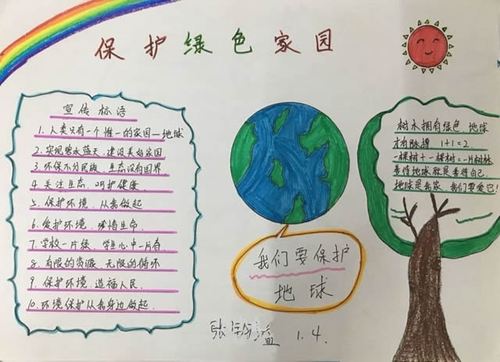 保护绿色家园
宣传标语
1. 人类只有一个唯一的家园—地球
2. 实现碧水蓝天 建设美好家园
3. 环保不分民族 生态没有国界
4. 关注生态 呵护健康
5. 保护环境 从我做起
6. 爱护环境 珍惜生命
7. 学校一片绿 学生心中一片
8. 有限的资源 无限的循环
9. 保护环境 造福人民
10. 环境保护从我身边做起
我们要保护
地球
树木拥有绿色 地球
才有脉搏 1+1=2
一棵树+一棵树=一片树林
善待地球就是善待自己
地球是我家 我们要爱它!
张 1.4.